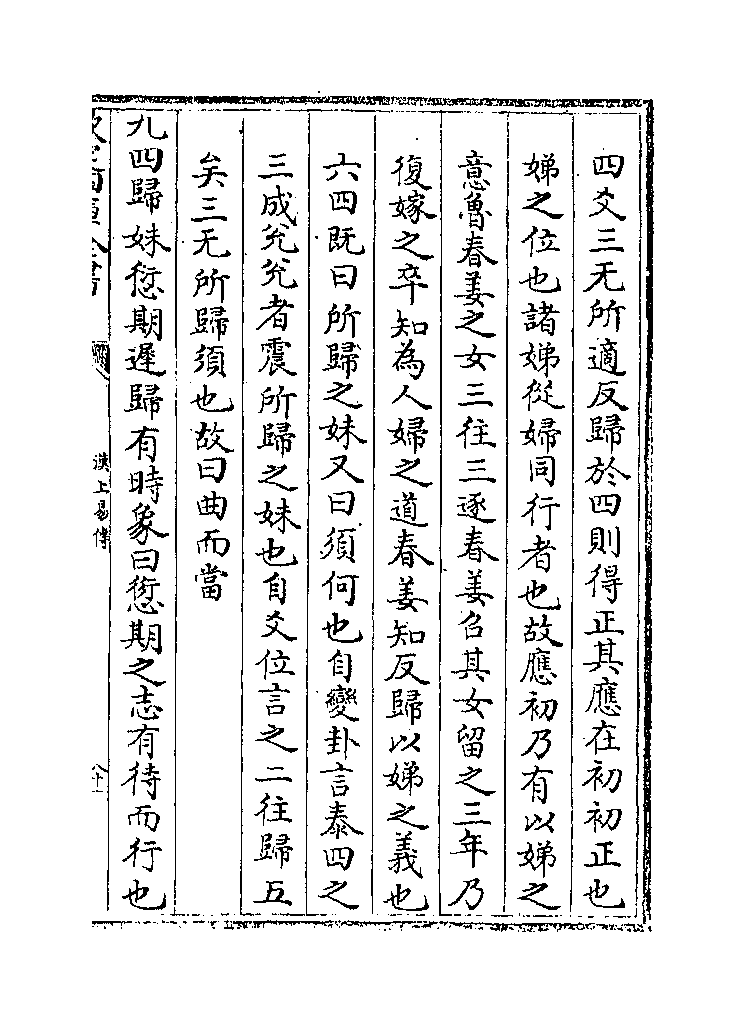 四爻三无所適反歸於四則得正其應在初初正也
娣之位也諸娣從婦同行者也故應初乃有以娣之
意魯春姜之女三往三逐春姜召其女留之三年乃
復嫁之卒知為人婦之道春姜知反歸以娣之義也
六四既曰所歸之妹又曰須何也自變卦言泰四之
三成兊兊者震所歸之妹也自爻位言之二往歸五
矣三无所歸須也故曰曲而當
九四歸妹愆期遲歸有時象曰愆期之志有待而行也
漢上易傳